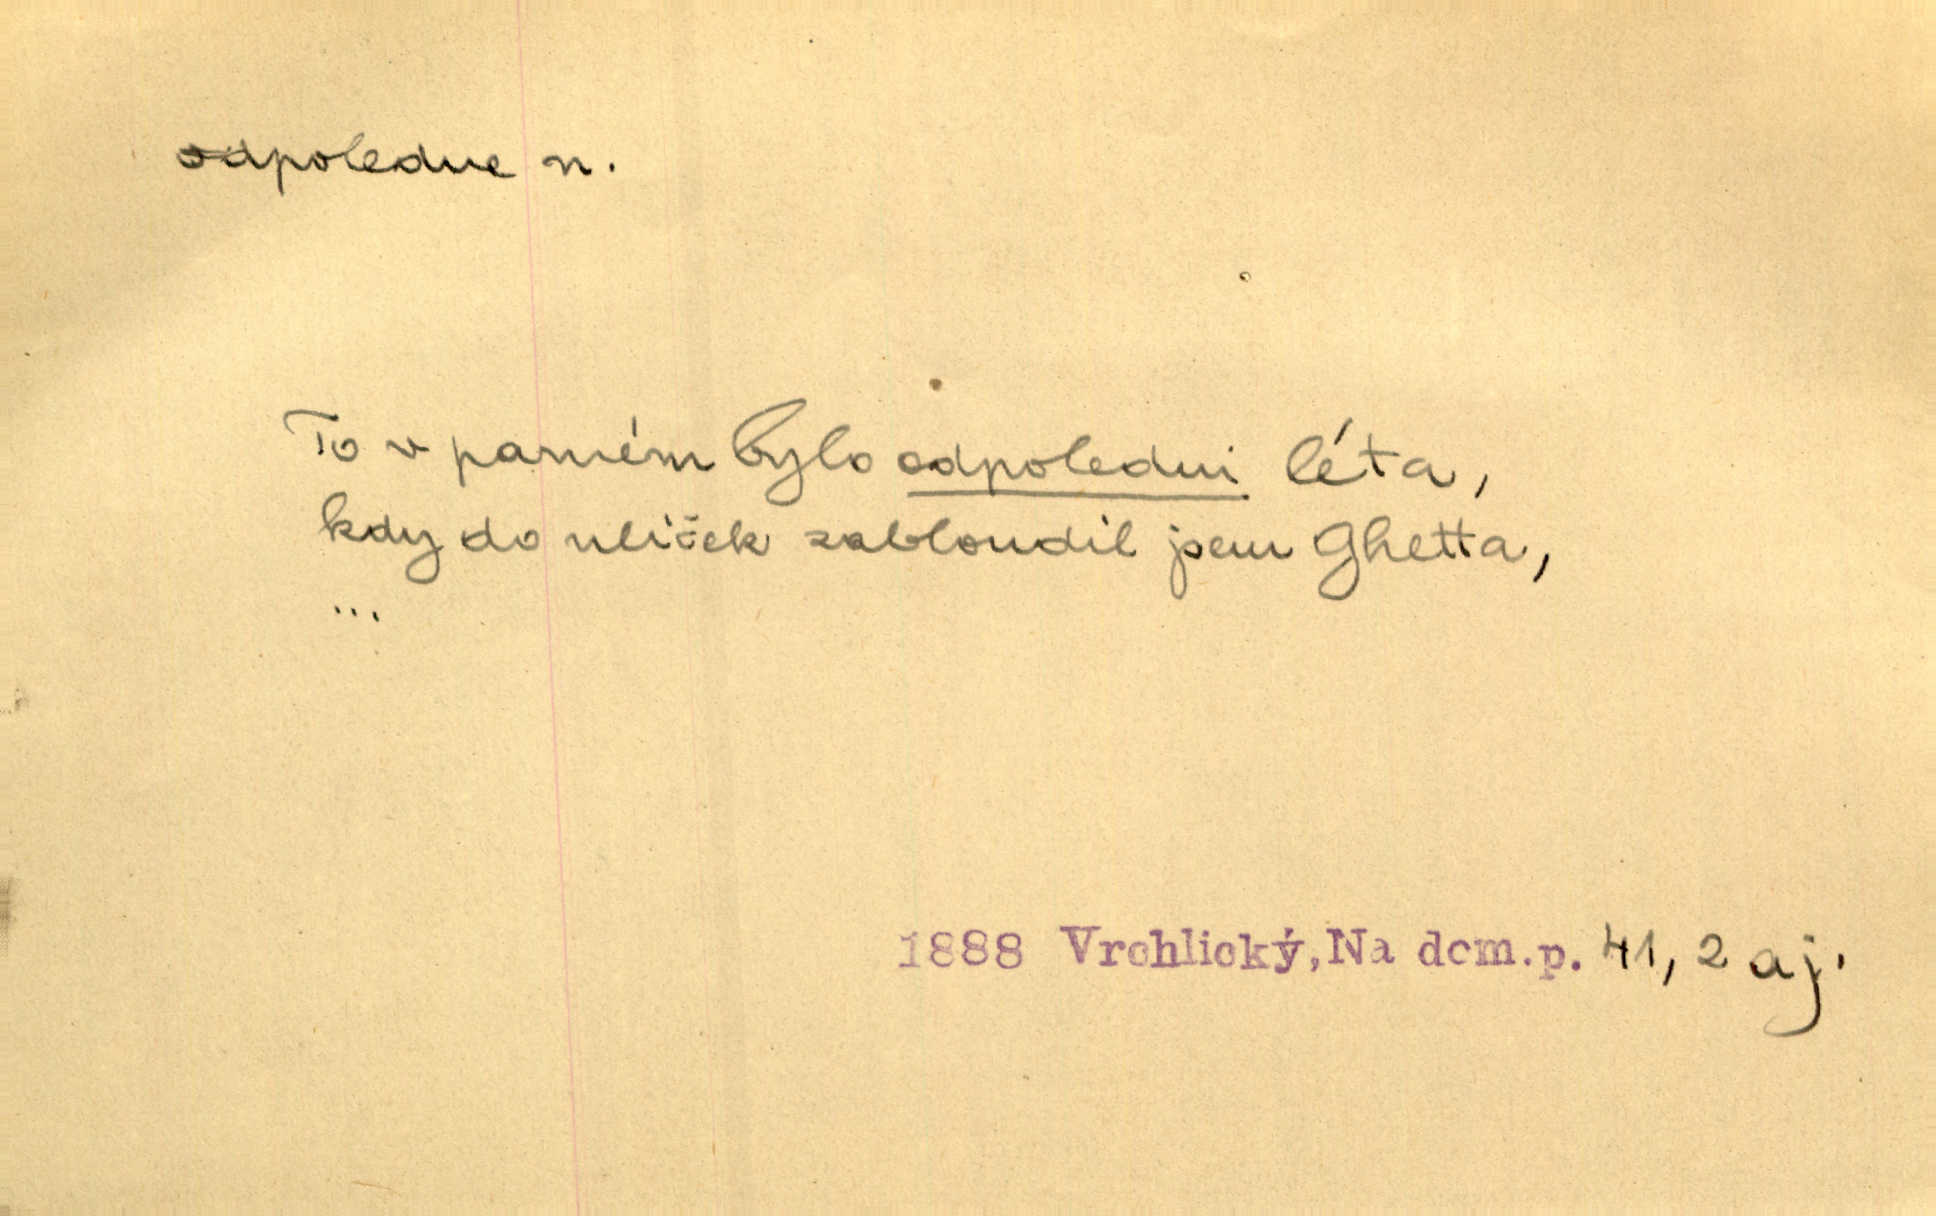 odpoledne n.
To v parném bylo odpoledni léta,
kdy do uliček zabloudil jsem Ghetta,
...
1888 Vrchlický, Na dom.p. 41, 2 aj.